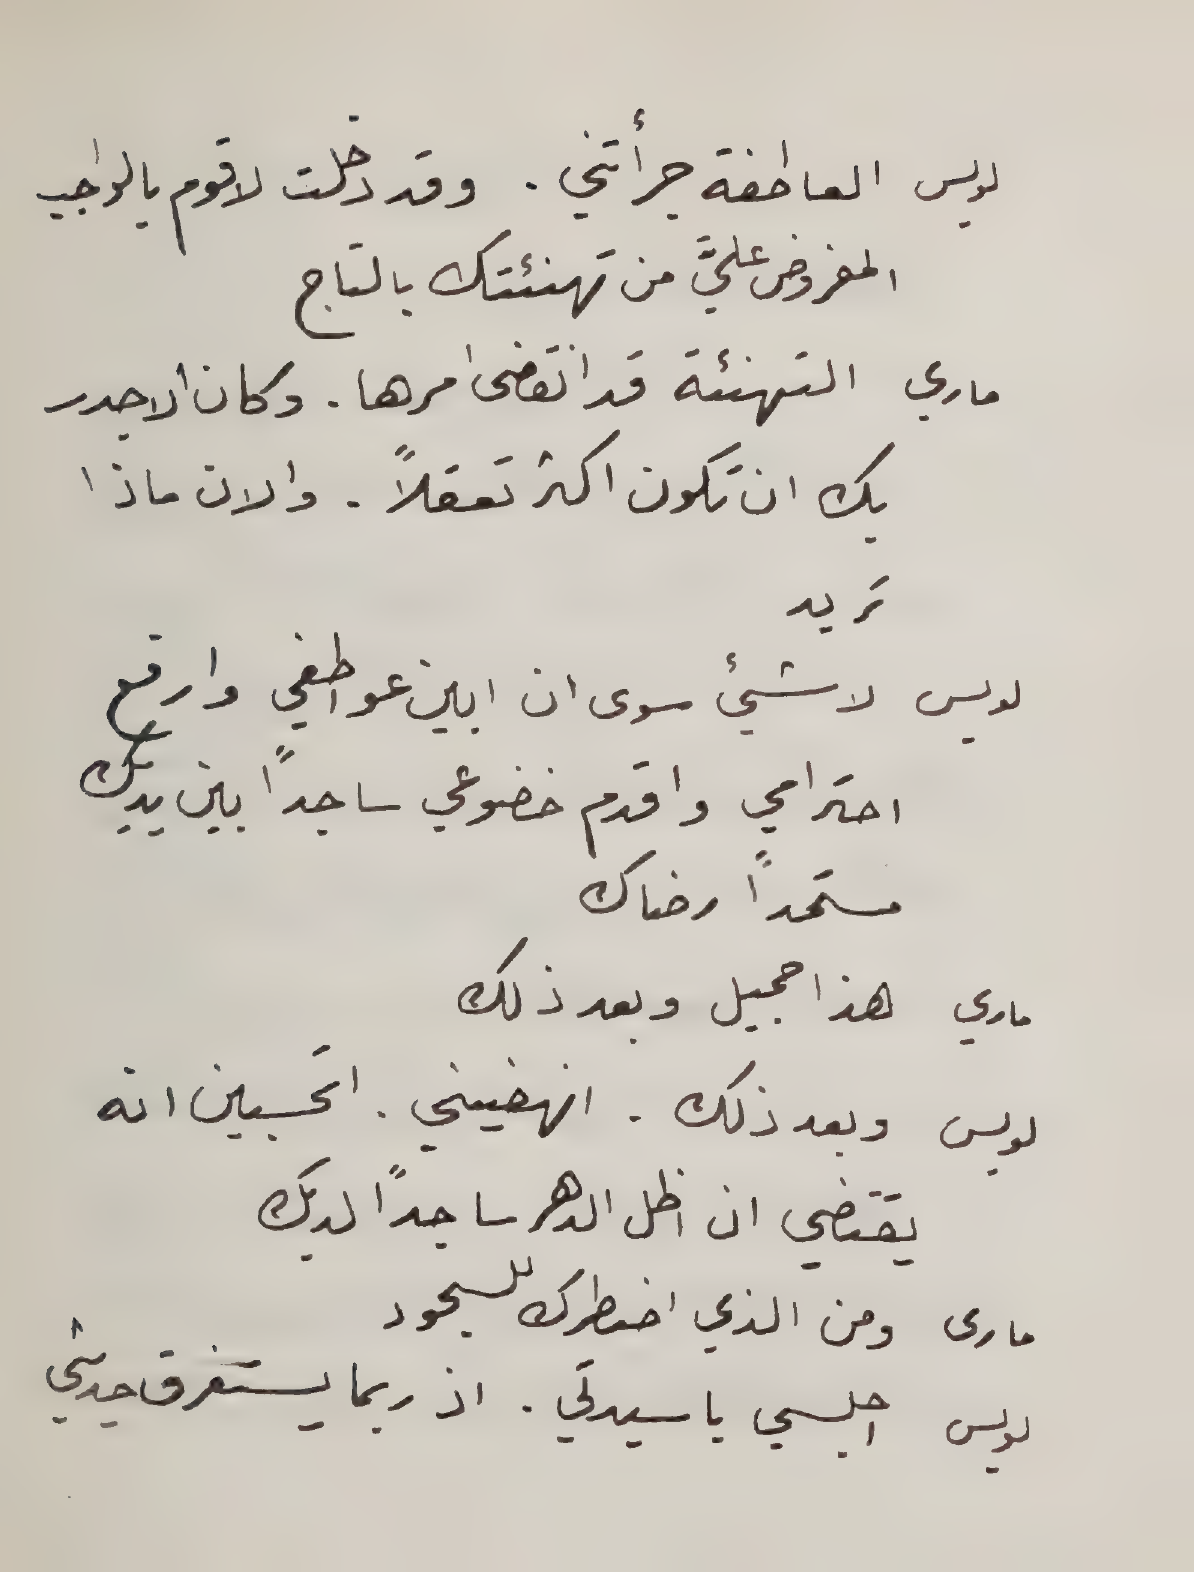 لويس العاطفة جرأتني . وقد دخلت لاقوم بالواجب
المفروض عليَّ من تهنئتك بالتاج
ماري التهنئة قد انقضى امرها . وكان الاجدر
بك ان تكون اكثر تعقلاً . والان ماذا
تريد
لويس لا شيئ سوى ان ابين عواطفي وارفع
احترامي واقدم خضوعي ساجداً بين يديك
مستمداً رضاك
ماري هذا جميل وبعد ذلك
لويس وبعد ذلك . انهضيني . اتحسبين انه
يقتضي ان اظل الدهر ساجداً لديك
مارى ومن الذي اضطرك للسجود
لويس اجلسي يا سيدتي . اذ ربما يستغرق حديثي